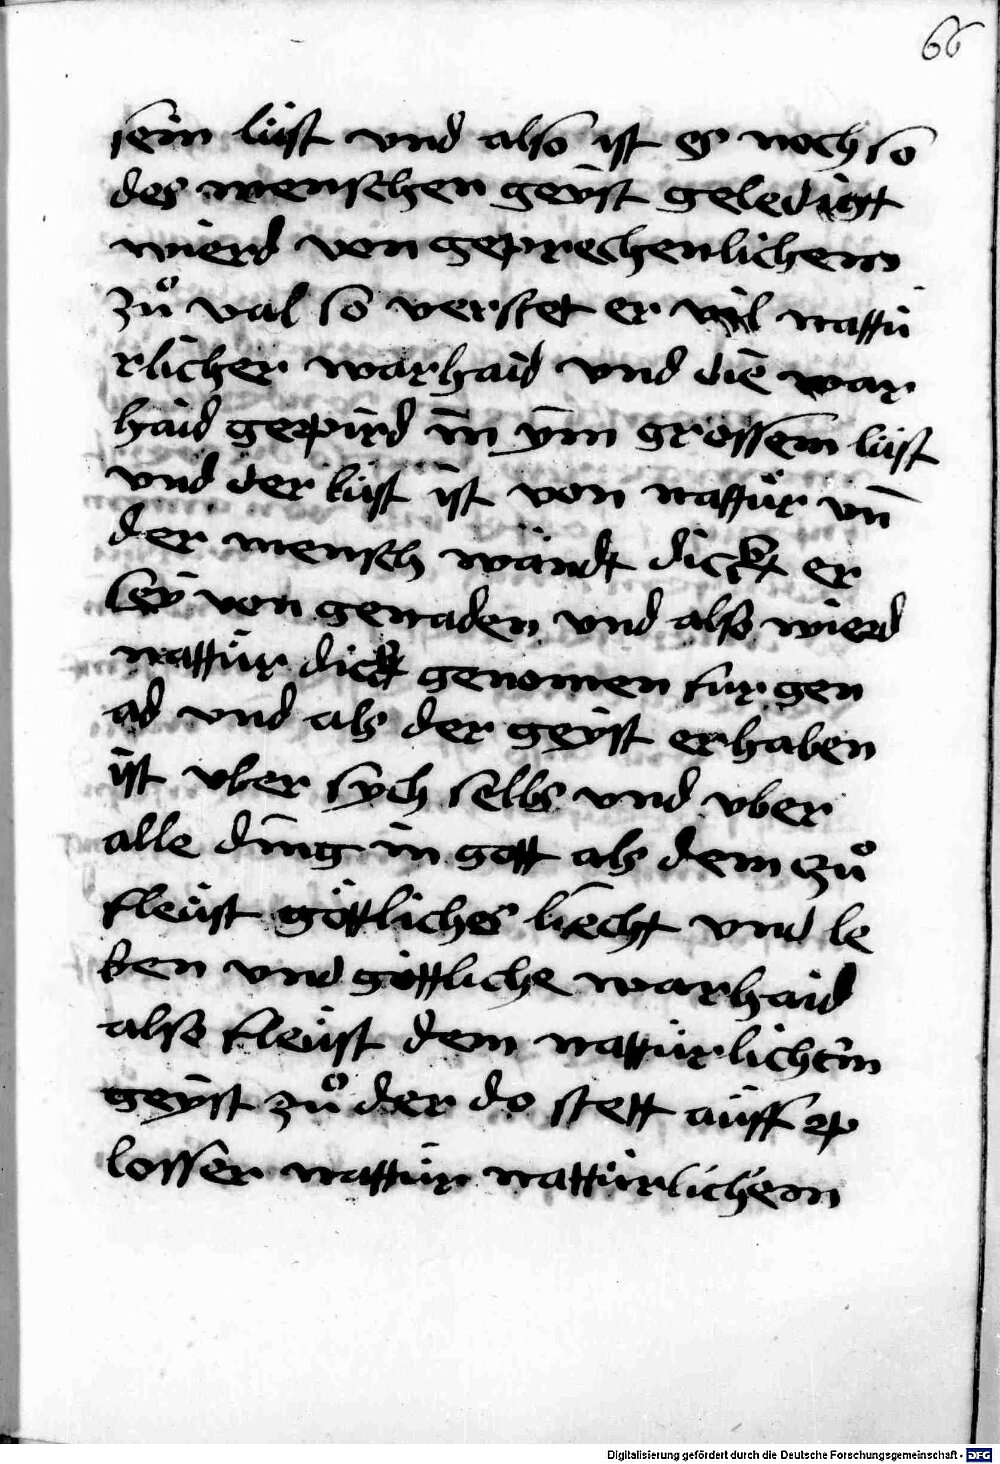 66
sein lüst vnd also ist es noch so
des menschen geÿst geledigtt
wierd von geprechenlichem
zuͦ val so verstet er vil nattü
rlicher warhaid vnd die war
haid gepird im ÿm grossem lüst
vnd der lüst ist von nattür vn̄
der mensch wändt dickt er
seÿ von genaden vnd also wierd
nattür dickt genomen fur gen
ad vnd als der geÿst erhaben
ist vber sych selbs vnd vber
alle ding in gott als dem zuͦ
fleüst göttliches liecht vnd le
ben vnd göttliche warhaid
also fleüst dem nattürlichem
geÿst zuͦ der do stett aüff p
losser nattür nattürlichem
Digitalisierung gefördert durch die Deutsche Forschungsgemeinschaft - DFG